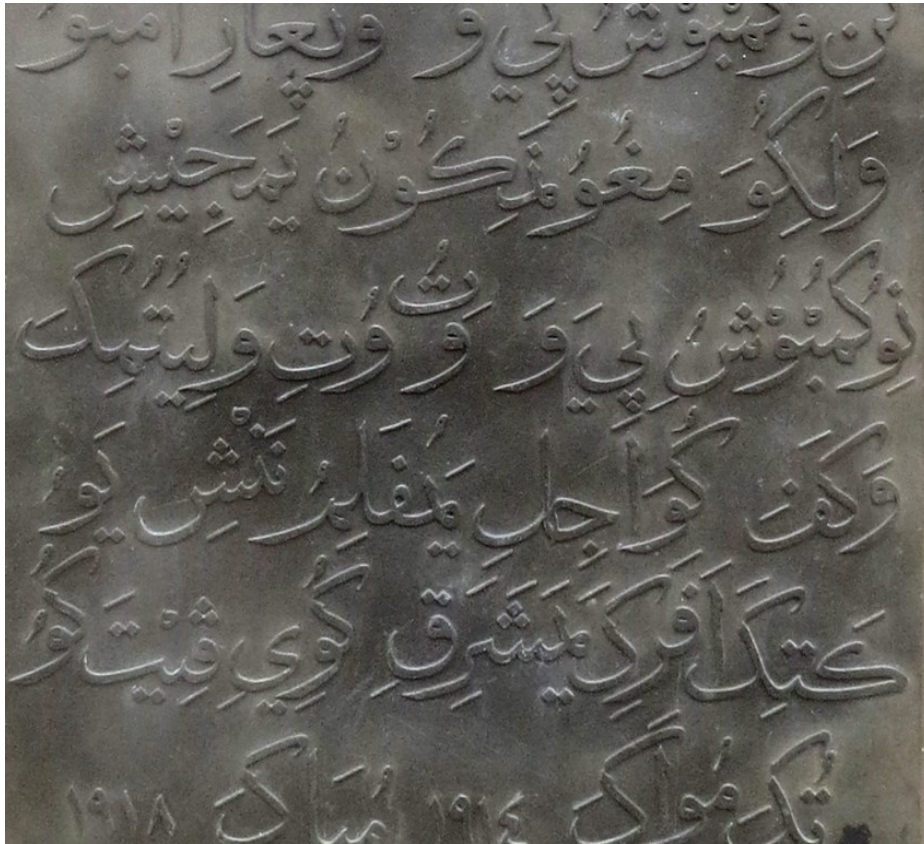 نِ وكُمْبُوْشُ پِي وَ وپغازِ امبو
وَلِكُوَ مِغُوُ نَمِكُوْنُ يَمَجِيْشِ
نِوُكُمْبُوْشُ پِيَ وَ وَتُ وُتِ وَلِيُتُمِكَ
وَكَفَ كُوَاجِلِ يَمْفَلِمُ نَنْشِ يَوُ
كَتِكَ اَفْرِكَ يَمَشَرِقِ كُوِيِ ڤِيْتَ كُوُ
تُكِ مُوَاكَ ١٩١٤ مْپَاكَ ١٩١٨